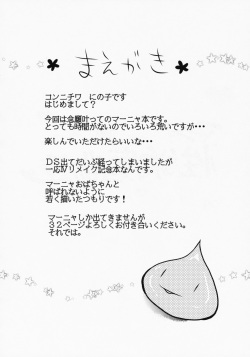 まえがき
コンニチワ にの子です
はじめまして?
今回は念願叶ってのマーニャ本です。
とっても時間がないのでいろいろ荒いですが・・・
楽しんでいただけたらいいな・・・
DS出てだいぶ経ってしまいましたが
一応Ⅳリメイク記念本なんです。
マーニャおばちゃんと
呼ばれないように
若く描いたつもりです!
マーニャしか出てきませんが
32ページよろしくお付き合いください。
それでは。